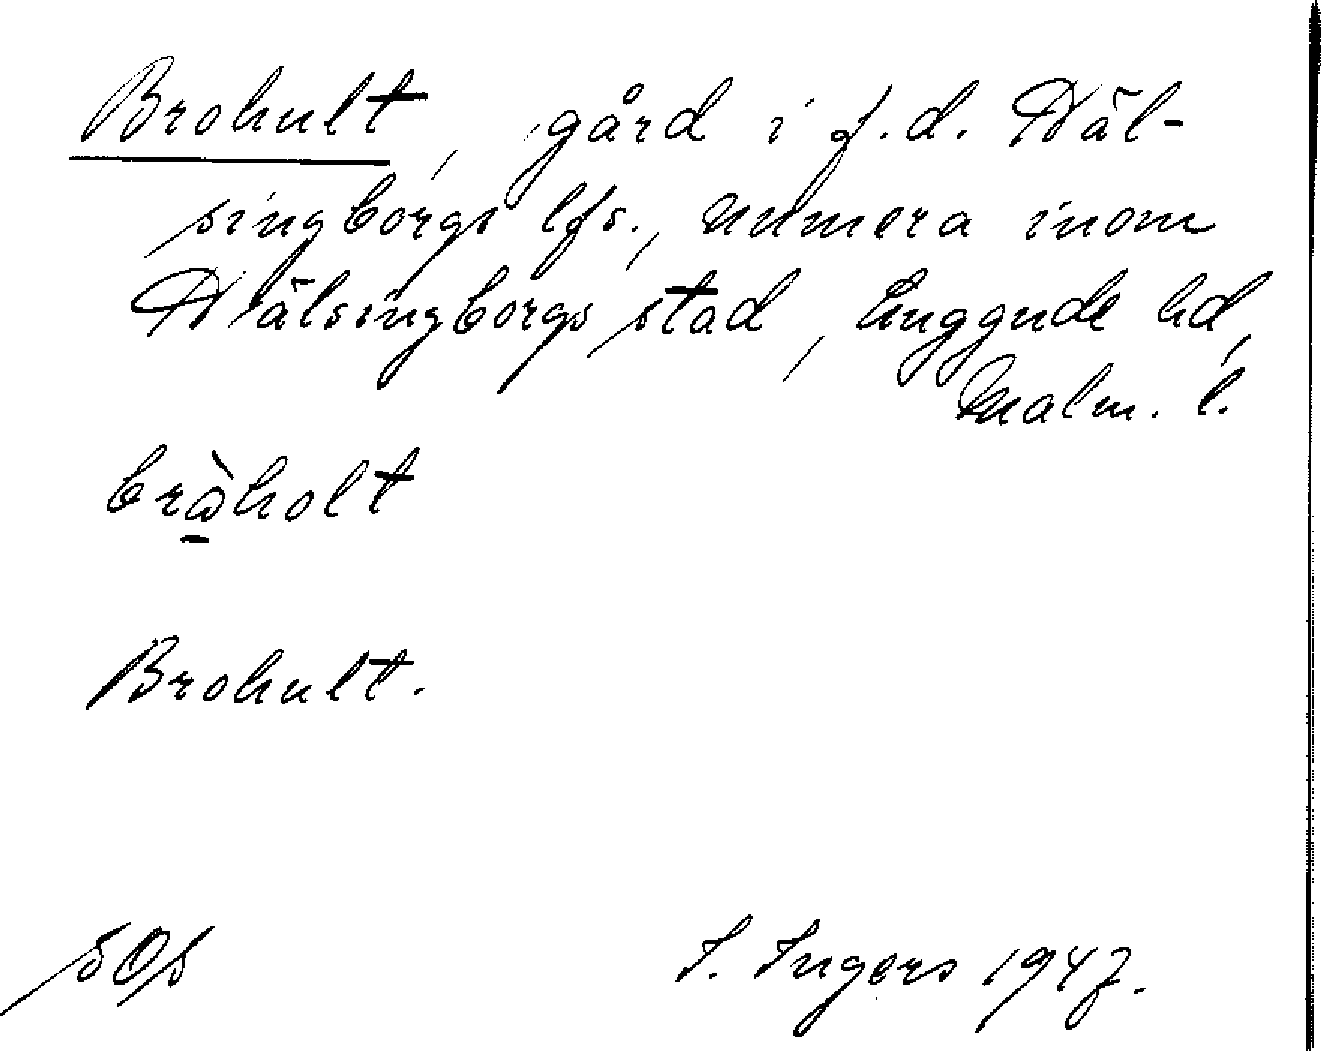 Brohult, gård i f.d. Häl-
singborgs lfs., numera inom
Hälsingborgs stad, Luggude hd,
Malm. l.
bròholt
Brohult.
SOS I. Ingers 1947.